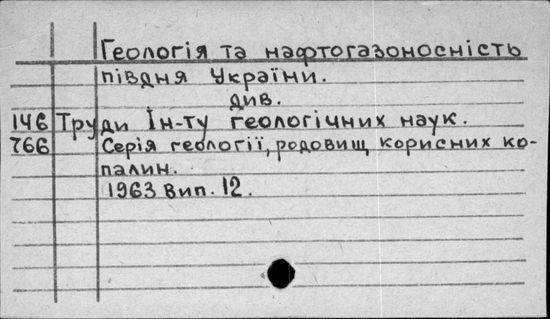 Геологія та нафтогазоносність
півдня України.
див.
146 Труди Ін-ту геологічних наук.
766 Серія геології, родовищ корисних ко-
палин.
1963 Вип. 12.